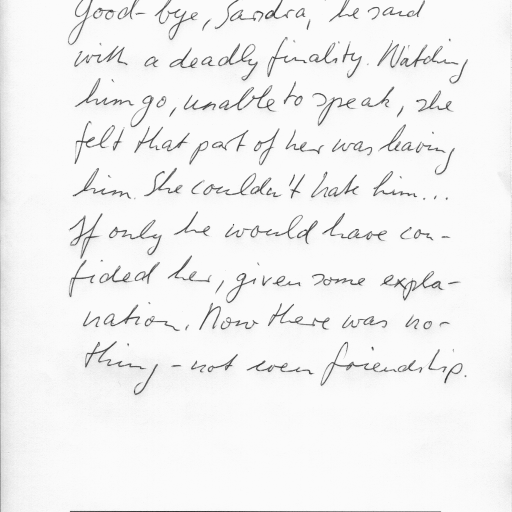 Good-bye, Sandra," he said
with a deadly finality. Watching
him go, unable to speak, she
felt that part of her was leaving
him. She couldn't hate him...
If only he would have con-
fided her, given some expla-
nation. Now there was no-
thing - not even friendship.